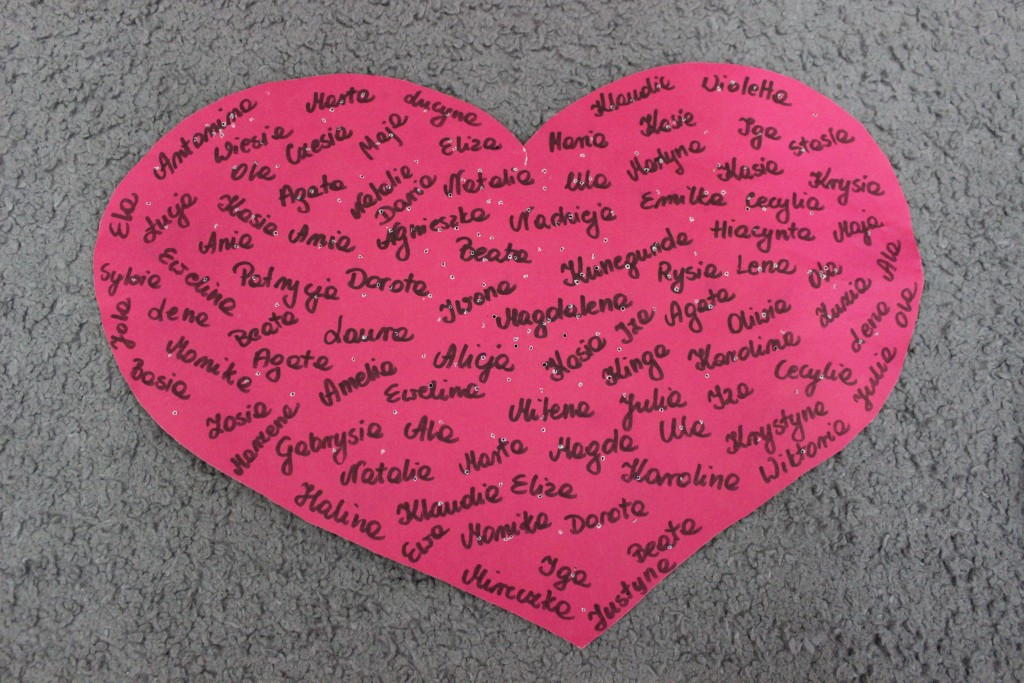 Klaudia Violetta
Antonina Marta Lucyna
Wiesia Czesia Maja Eliza Maria Kasia Iga Stasia
Ola Agata Natalia Daria Natalia Ula Martyna Kasia Krysia
Ela Łucja Kasia Ania Agnieszka Nadzieja Emilka Cecylia
Ania Beata Kunegunda Hiacynta Maja
Sylwia Ewelina Patrycja Dorota Iwona Rysia Lena Ola Ala
Jola Lena Beata Laura Magdalena Iza Agata Oliwia Zuzia Ola
Monika Agata Alicja Kasia Kinga Karolina Lena
Basia Amelia Ewelina Cecylia Julia
Zosia Milena Julia Iza
Marzena Gabrysia Ala Marta Magda Ula Krystyna
Natalia Karolina Wiktoria
Halina Klaudia Eliza
Ewa Monika Dorota Beata
Mireczka Iga Justyna